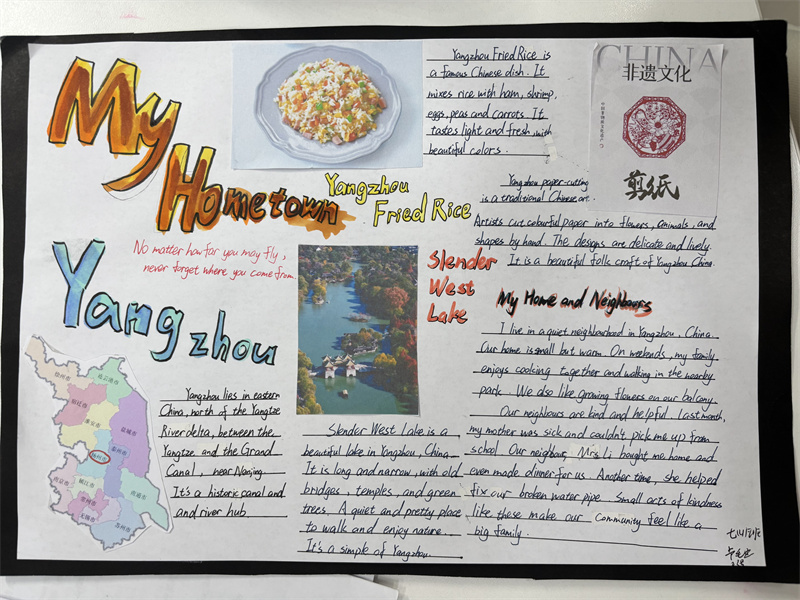 My
Hometown
Yangzhou
No matter how far you may fly,
never forget where you come from.
Yangzhou
Fried Rice
Yangzhou Fried Rice is
a famous Chinese dish. It
mixes rice with ham, shrimp,
eggs, peas and carrots. It
tastes light and fresh with
beautiful colors.
CHINA
非遗文化
剪纸
Yangzhou paper-cutting
is a traditional Chinese art.
Artists cut colourful paper into flowers, animals, and
shapes by hand. The designs are delicate and lively.
It is a beautiful folk craft of Yangzhou China.
Slender
West
Lake
Slender West Lake is a
beautiful lake in Yangzhou, China.
It is long and narrow, with old
bridges, temples, and green
trees. A quiet and pretty place
to walk and enjoy nature.
It's a simple of Yangzhou.
徐州市
连云港市
宿迁市
淮安市
盐城市
扬州市
泰州市
南京市
镇江市
常州市
无锡市
苏州市
南通市
Yangzhou lies in eastern
China, north of the Yangtze
River delta, between the
Yangtze and the Grand
Canal, near Nanjing.
It's a historic canal and
and river hub.
My Home and Neighbours
I live in a quiet neighbourhood in Yangzhou, China.
Our home is small but warm. On weekends, my family
enjoys cooking together and walking in the nearby
park. We also like growing flowers on our balcony.
Our neighbours are kind and helpful. Last month,
my mother was sick and couldn't pick me up from
school. Our neighbour, Mrs Li bought me home and
even made dinner for us. Another time, she helped
fix our broken water pipe. Small acts of kindness
like these make our community feel like a
big family.